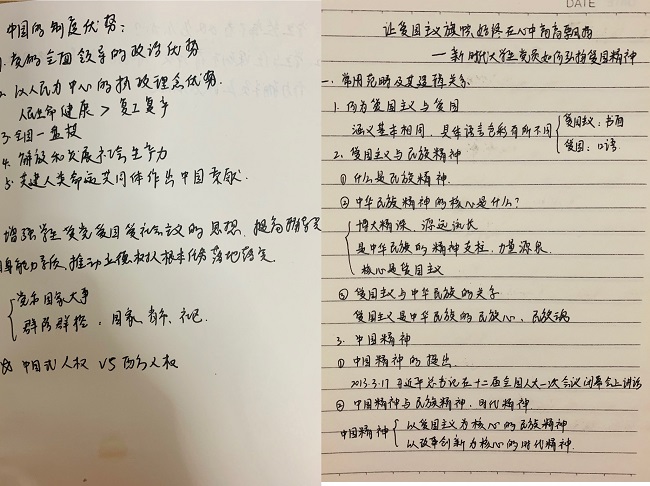 中国的制度优势：
1. 党的全面领导的政治优势
2. 以人民为中心的执政理念优势.
人民生命健康 > 复工复产
3. 全国一盘棋
4. 解放和发展社会生产力
5. 共建人类命运共同体作出中国贡献.
增强学生爱党爱国爱社会主义的思想,
推动立德树人根本任务落地落实.
党和国家大事
群防群控：国家、都市、社区.
中国式人权 VS 西方人权
DATE
让爱国主义旗帜始终在心中高高飘扬
——新时代大学生党员如何弘扬爱国精神
一. 常用范畴及其逻辑关系
1. 何为爱国主义与爱国
涵义基本相同, 具体语言色彩有所不同
爱国主义：书面
爱国：口语
2. 爱国主义与民族精神
① 什么是民族精神.
② 中华民族精神的核心是什么？
博大精深、源远流长
是中华民族的精神支柱、力量源泉.
核心是爱国主义
③ 爱国主义与中华民族的关系
爱国主义是中华民族的民族心、民族魂
3. 中国精神
① 中国精神的提出.
2013.3.17 习近平总书记在十二届全国人大一次会议闭幕会上讲话
② 中国精神与民族精神、时代精神
中国精神
以爱国主义为核心的民族精神
以改革创新为核心的时代精神.